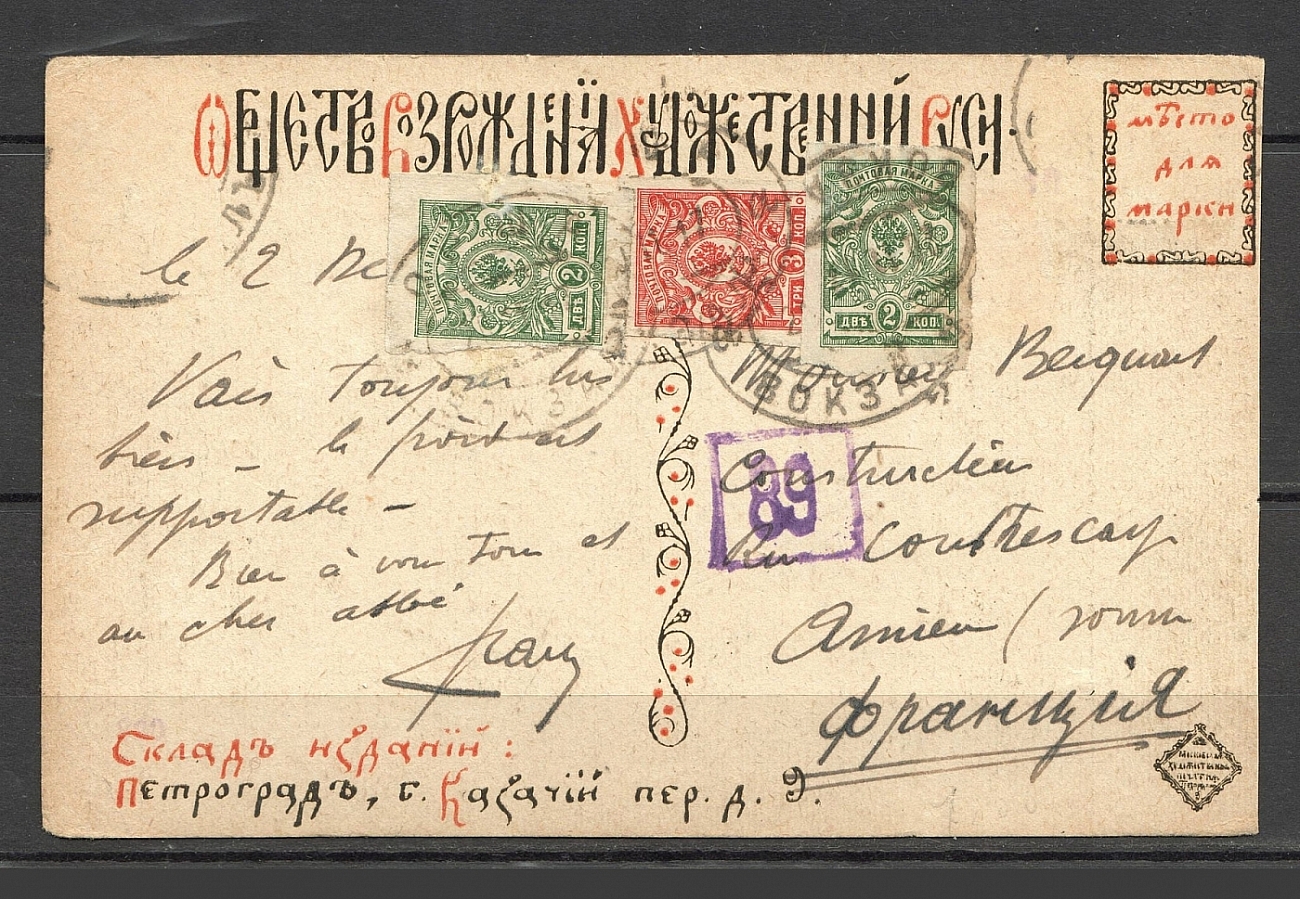 Ѡбщество Возрожденія Художественной Руси.
мѣсто
для
марки
ПОЧТОВАЯ МАРКА
ДВѢ 2 КОП.
ПОЧТОВАЯ МАРКА
ТРИ 3
ПОЧТОВАЯ МАРКА
ДВѢ 2 КОП.
ВОКЗ
le 2
Vais toujours très
bien – le froid est
supportable –
Bien à vous tous et
au cher abbé
Monsieur
89
Constructeur
Rue Contrescarpe
Amiens (Somme
Франція
Складъ изданій:
Петроградъ, Б. Казачій пер. д. 9.